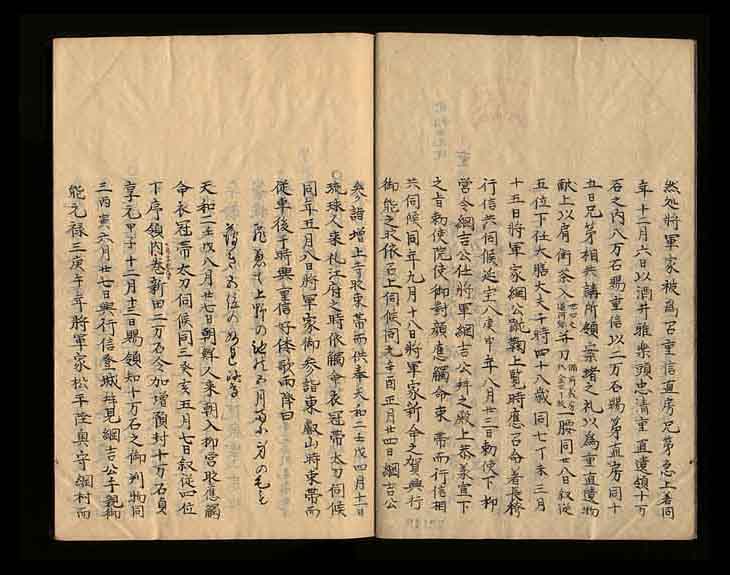 然処将軍家被為召重信直房兄弟急上着同
年十二月六日以酒井雅楽頭忠清重直遺領十万
石之内八万石賜重信以二万石賜弟直房同十
五日兄弟相共講所領案堵之礼以為重直遺物
献上以肩衝茶入 并刀 一腰同廿八日叙従
五位下任大膳大夫于時四十八歳同七丁未三月
十五日将軍家綱公蹴鞠上覧時應召命着長袴
行信共伺候延宝八庚申年八月廿三日勅使下柳
営令綱吉公仕将軍綱吉公科之殿上恭羕宣下
之旨勅使院使御對顔應觸命束帯而行信相
共伺候同年九月十八日将軍家新命之賀興行
御能之故依召上伺候同九辛酉正月廿四日綱吉公
参詣増上寺取束帯而供奉天和二壬戌四月十一日
琉球人来礼江府之時依觸命衣冠帯太刀伺候
同年五月八日将軍家御参詣東叡山時束帯而
従車後于時興重信好倭歌而降曰
上野の池の五月雨に
天和二壬戌八月廿七日朝鮮人来朝入柳営取應觸
命衣冠帯太刀伺候同三癸亥五月七日叙従四位
下序領内墾新田二万石今加増預封十万石貞
享元甲子十二月十二日賜領知十万石之御判物同
三丙寅六月廿七日興行信登城拝見綱吉公手親御
能元禄三庚午年将軍家松平陸奥守綱村而